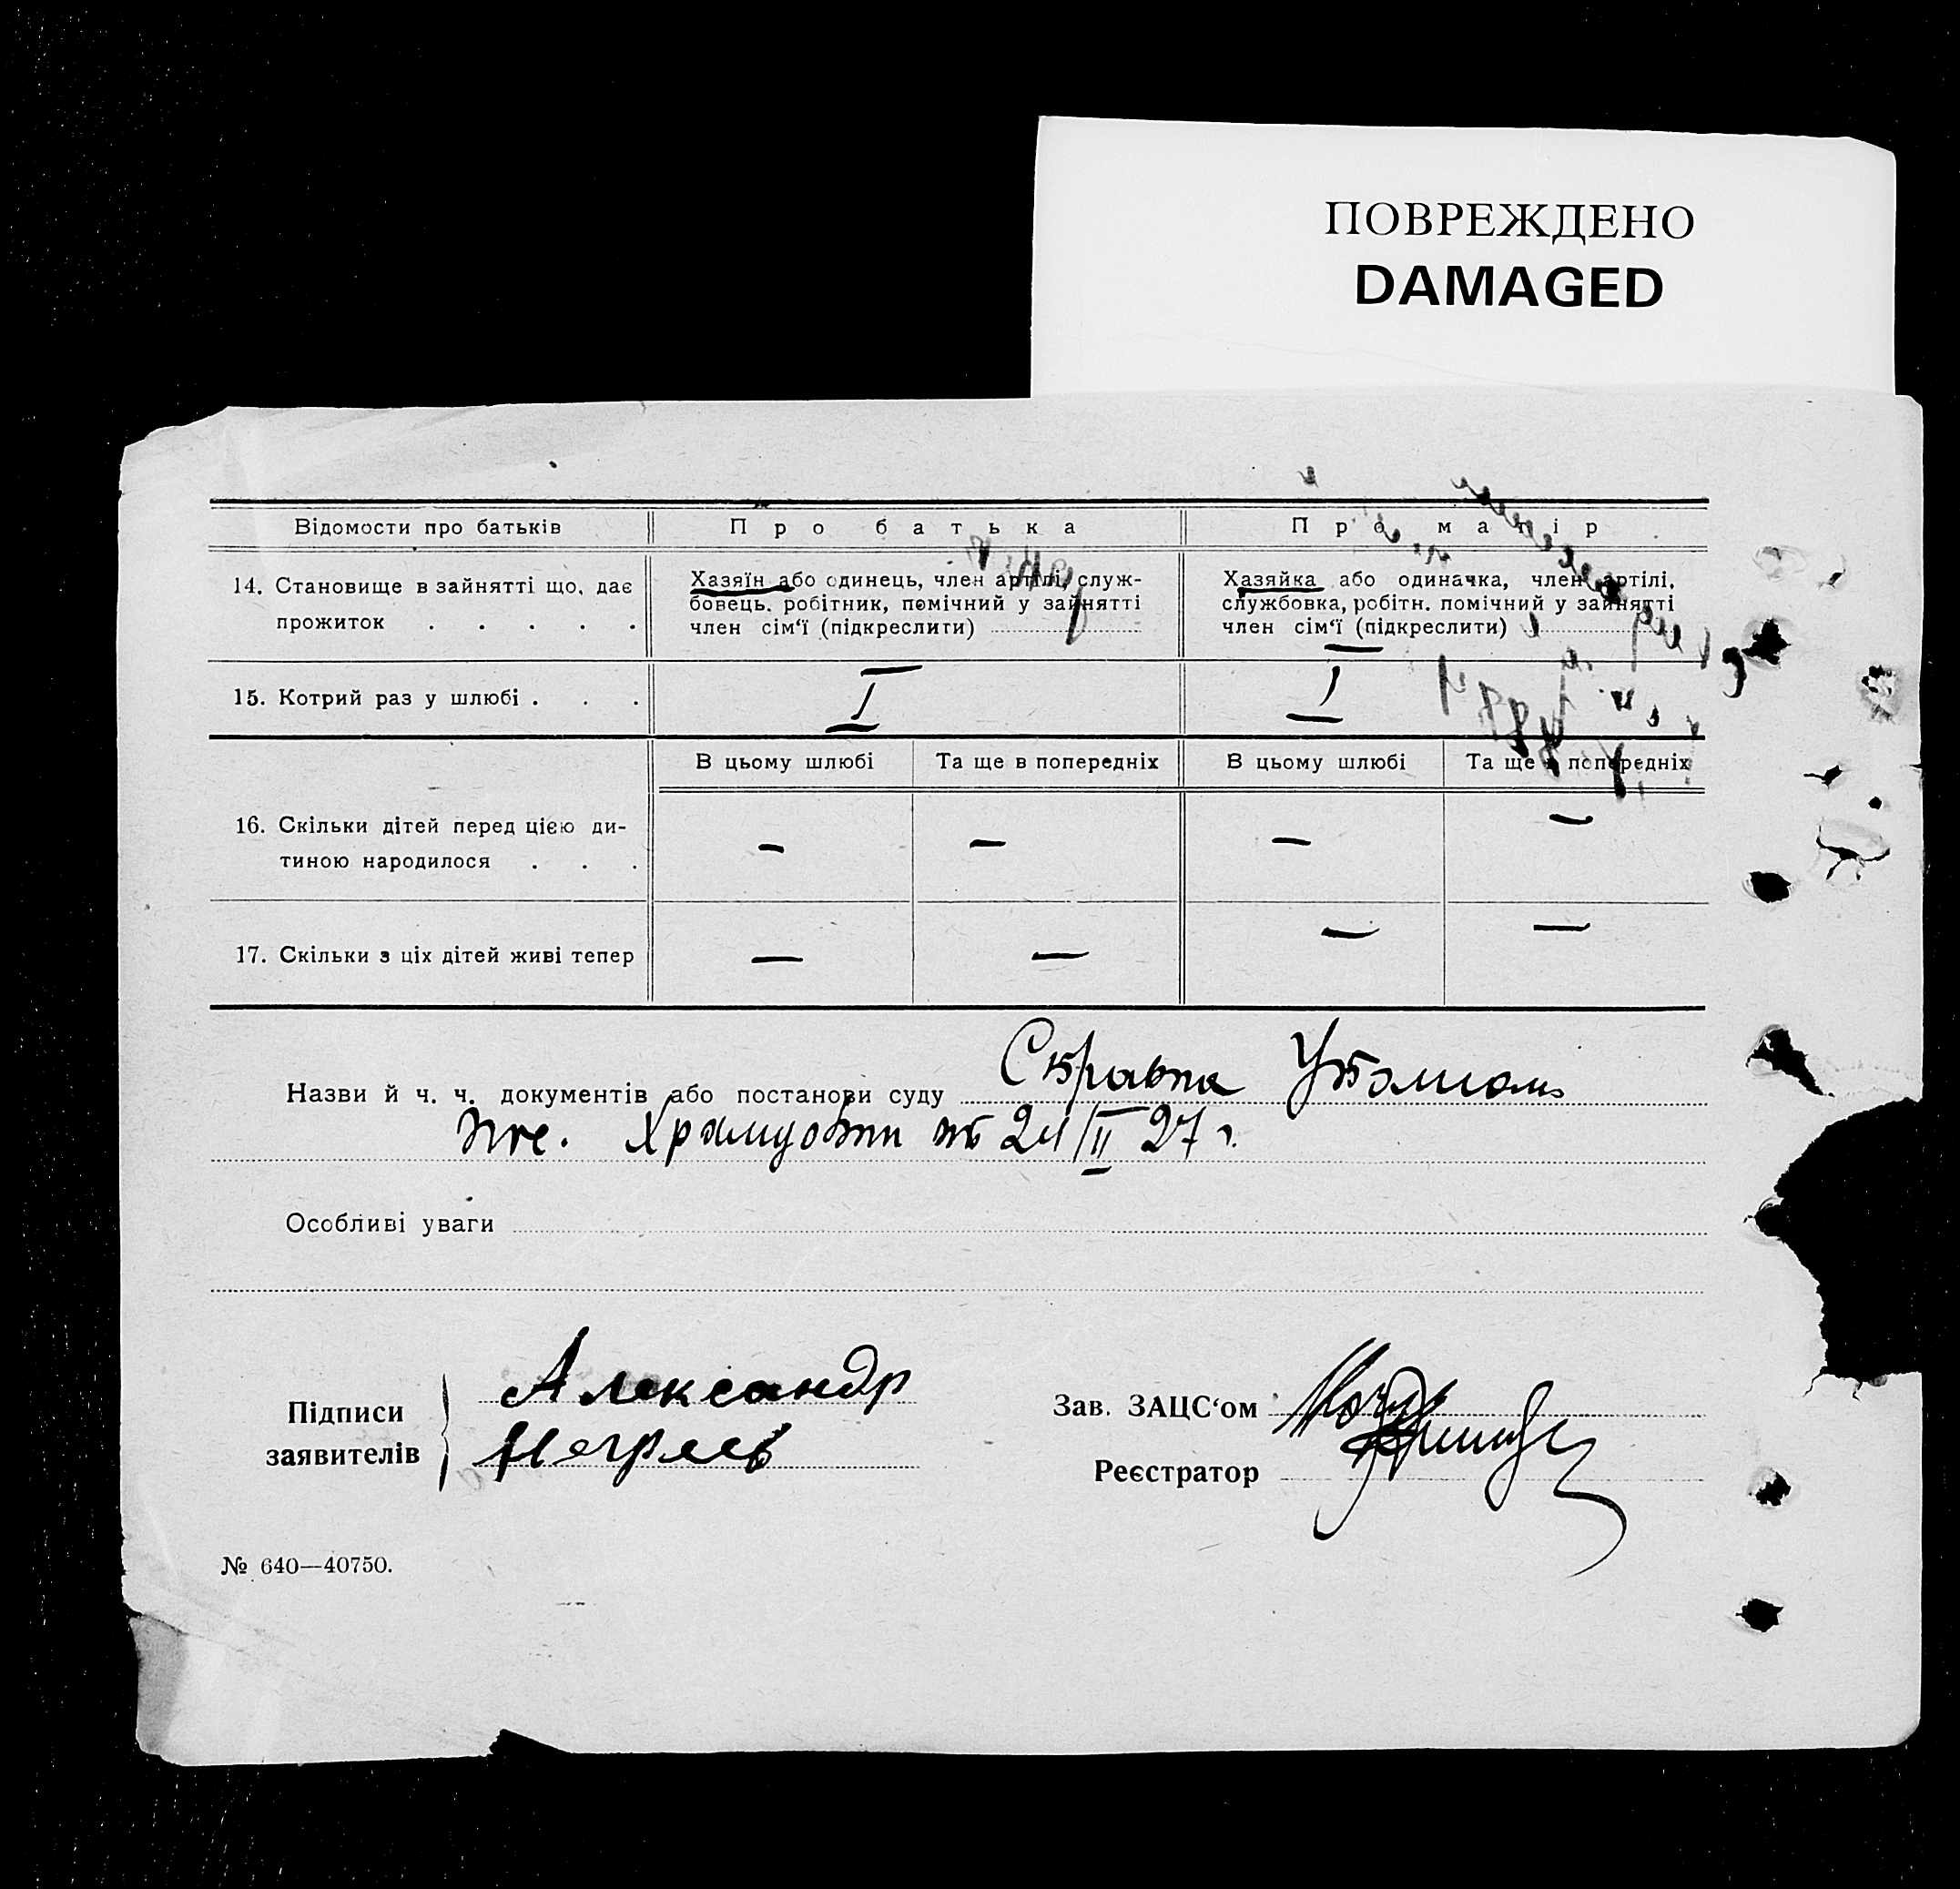 ПОВРЕЖДЕНО
DAMAGED
Відомости про батьків
Про батька
Про матір
14. Становище в зайнятті що, дає прожиток . . . . .
Хазяїн або одинець, член артілі, служ-
бовець. робітник, помічний у зайнятті
член сім‘ї (підкреслити)
Хазяйка або одиначка, член артілі,
службовка, робітн. помічний у зайнятті
член сім‘ї (підкреслити)
15. Котрий раз у шлюбі . . .
I
I
В цьому шлюбі
Та ще в попередніх
В цьому шлюбі
Та ще в попередніх
16. Скільки дітей перед цією ди-
тиною народилося . . .
— — — —
17. Скільки з ціх дітей живі тепер
— — — —
Назви й ч. ч. документів або постанови суду Справка
27 г.
Особливі уваги
Підписи
заявителів
Александр
Зав. ЗАЦС‘ом
Реєстратор
№ 640—40750.